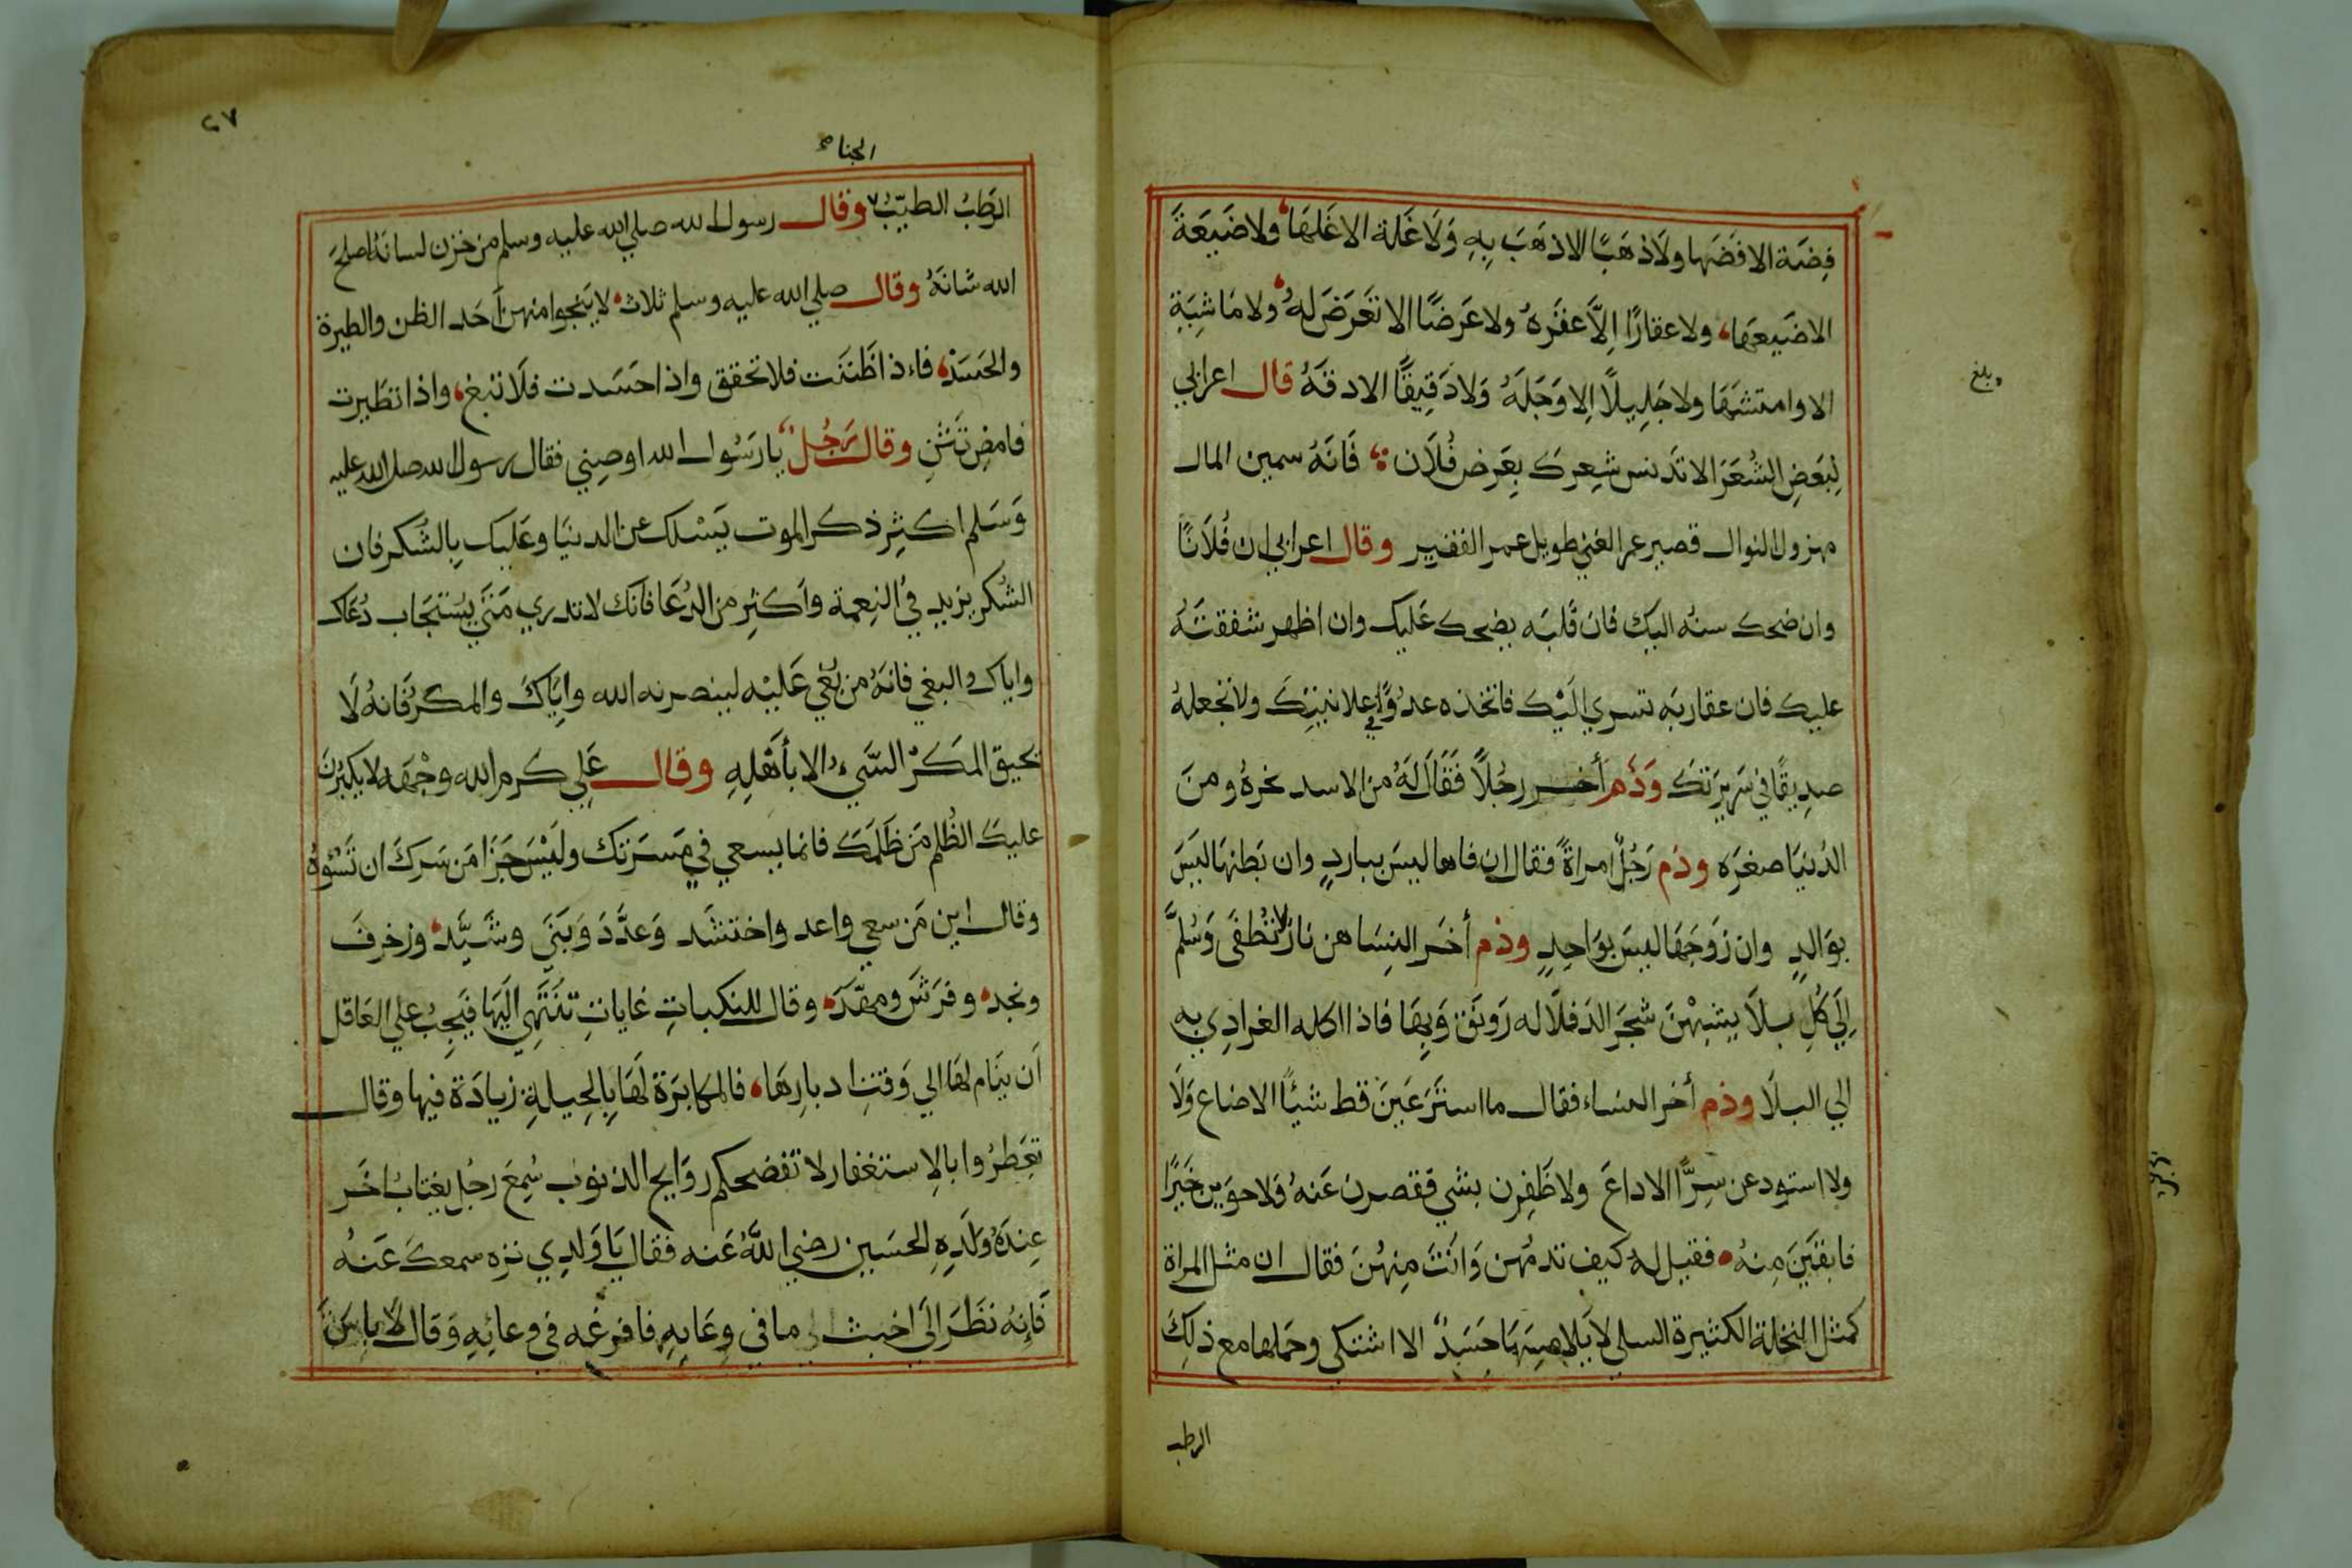 فِضَة الا فَضَها ولَا ذهَبًا الا ذهَبَ بِهِ وَلَا غَلة الا غَلهَا ولا ضَيعَةً
الا ضَيعَها، ولا عقارًا إِلَّا عقَره ولا عَرضًا الا تعَرَضَ لهُ ولا مَاشِيَةِ
الا وامتشهَا ولا جَلِيلًا إلا وَجَلَهُ وَلا دَقِيقًا الا دقهُ قال اعرابي
لِبَعَضِ الشُعَرَا لا تدنس شعِركَ بِعَرض فُلَان فَانَهُ سمين المال
مهزول النوال قصير عمر الغني طويل عمر الفقير وقال اعرابي ان فُلَانًا
وان ضحك سنهُ اليك فان قَلبَه يضحك عَليك وان اظهر شفقتهُ
عليك فان عقاربَه تسري اليْك فاتخذه عدُوًّا في علانيتِكَ ولا تجعلهُ
صدِيقًا في سَرِيرَتِكَ وَذَم أخر رجُلًا فَقَالَ لَهُ من الاسد بخرهُ ومنَ
الدُنيَا صغرَه وذم رَجُلٌ امراةً فقال ان فاها ليسَ بباردٍ وان بَطنهَا ليسَ
بوَالدٍ وان زوَجَهَا ليسَ بوَاحِدٍ وذم أخَر النِسَا هن نار لا تُطفَى وَسُلمٌ
إِلَي كُلِ بلَا يشبْهنَ شجَر الدَفلَا له رَونَق وَبِهَا فاذا اكله الغرا دِي به
الي البلَا وذم أخر النساء فقال ما استَرعَينَ قط شيئًا الا ضاع وَلَا
ولا استودعن سِرًّا الا داعَ ولا ظَفِرن بشي فقصرن عَنهُ وَلا حوَين خَيَرًا
فابقَينَ مِنهُ فقيل له كيف تدمُهن وَانَتَ مِنهُنَ فقال ان مثل المراة
كمثل النخلة الكثيرة السلي لا يلامِسهَا جَسَدٌ الا اشتكي وحملها مع ذلِكَ
الرطب
بلغ
٢٧
الجنا
الرَّطَبُ الطيّبُ وقال رسول الله صلي الله عليه وسلم من خزن لسانَهُ اصلحَ
الله شانَهُ وقال صلي الله عليه وسلم ثلاث لا ينجوا منهن أحَد الظن والطيرة
والحسَد فاءذا ظَنَنت فلا تحقق واذا حَسَدت فلَا تبغ، واذا تطَيرت
فامضِ تَنثنِ وقال رَجُل يا رسُول الله اوصِيني فقال رسول الله صلى الله عليه
وَسَلم اكثِر ذكر الموت يَسْلك عن الدنيَا وعَليك بِالشُكر فان
الشُكر يزيد في النِعمة وأكثِر من الدُعَا فانك لا تدري مَتَي يُستَجَاب دُعَاك
واياك والبغي فانَهُ من بُغي عَليْه لينصرنه الله وإيَاكَ والمكر فَانهُ لَا
تحيق المَكرُ السَّيءُ الا بأهلِهِ وقال عَلي كرم الله وجْهَه لا يكبُرنَ
عليكَ الظُلم مَن ظَلمَكَ فانما يسعي في مَسَرتك وليْسَ جَزَا مَن سَركَ ان تَسُؤهُ
وقال اين مَن سعي واعد واختشَد وَعدَّدَ وَبَنَي وشَيَّد وزخرفَ
ونجد وفرَشَ ومهّد وقال للنكباتِ غاياتِ تَنتَهي الَيها فيَجِبُ علي العَاقل
أن ينَام لهَا الي وَقتِ ادبارهَا، فالمكابَرَة لهَا بِالحِيلةِ زيادَة فيها وقال
تعَطرُوا بالِاستغفار لا تفضحكم رَوَايح الذنوب سُمِعَ رجُل يغتابُ اخَر
عِندَهُ وَلَدِهِ الحسَين رضي اللهُ عَنه فقال يَا وَلدِي نزِه سمعكَ عَنهُ
فَإِنهُ نظَرَ إلَي اخبث لي ما في وِعَايِهِ فافرغه في وعائِهِ وَقال لَا باس